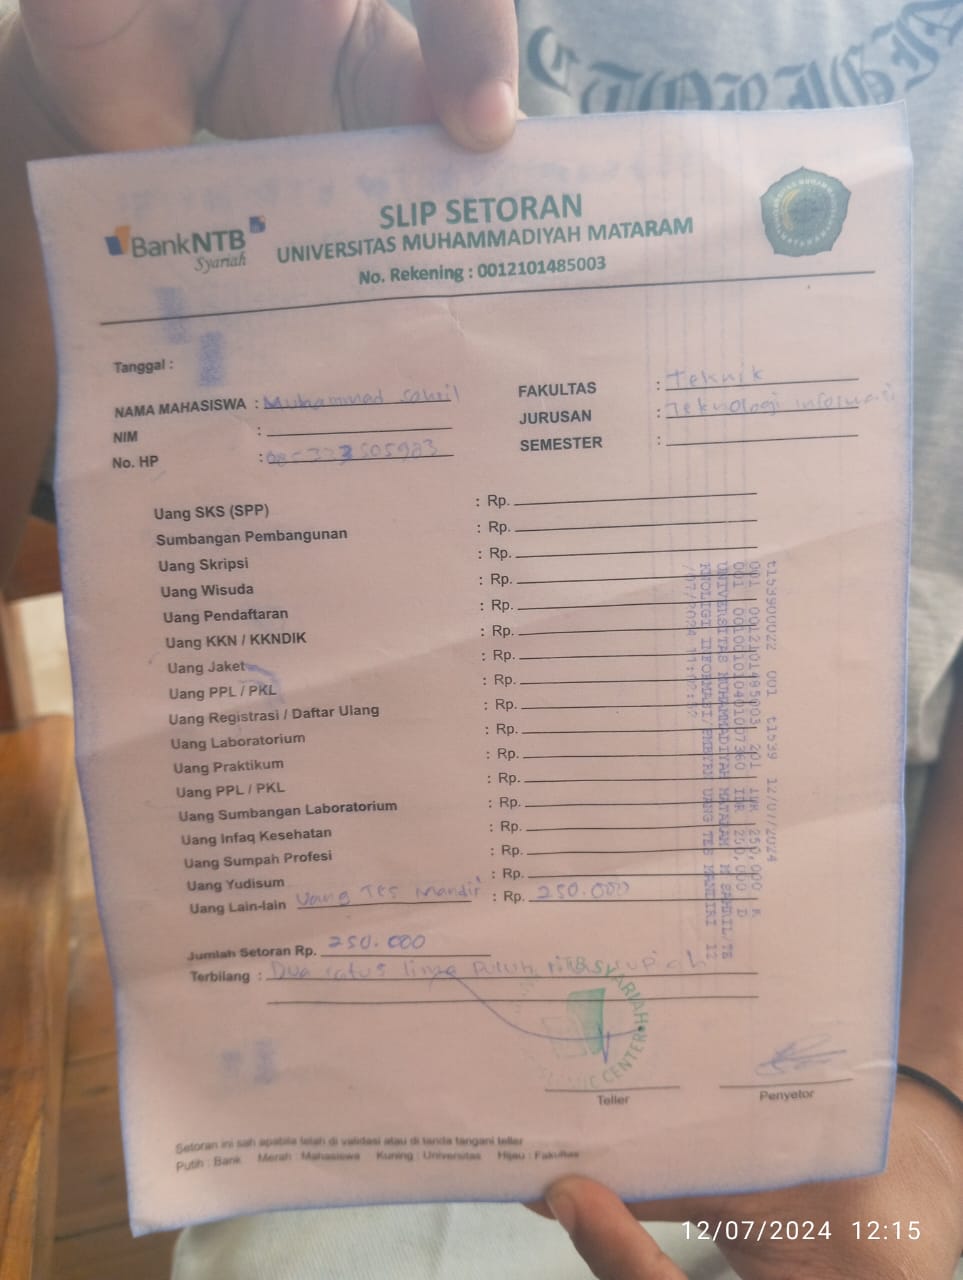 BankNTB
Syariah
SLIP SETORAN
UNIVERSITAS MUHAMMADIYAH MATARAM
No. Rekening : 0012101485003
Tanggal :
NAMA MAHASISWA : Muhammad Sahril
NIM :
No. HP :
FAKULTAS : Teknik
JURUSAN : Teknologi informasi
SEMESTER :
Uang SKS (SPP) : Rp.
Sumbangan Pembangunan : Rp.
Uang Skripsi : Rp.
Uang Wisuda : Rp.
Uang Pendaftaran : Rp.
Uang KKN / KKNDIK : Rp.
Uang Jaket : Rp.
Uang PPL / PKL : Rp.
Uang Registrasi / Daftar Ulang : Rp.
Uang Laboratorium : Rp.
Uang Praktikum : Rp.
Uang PPL / PKL : Rp.
Uang Sumbangan Laboratorium : Rp.
Uang Infaq Kesehatan : Rp.
Uang Sumpah Profesi : Rp.
Uang Yudisum : Rp.
Uang Lain-lain Uang Tes Mandiri : Rp. 250.000
Jumlah Setoran Rp. 250.000
Terbilang : Dua ratus lima puluh rupiah
Teller
Penyetor
Setoran ini sah apabila telah di validasi atau di tanda tangani teller
Putih : Bank Merah : Mahasiswa Kuning : Universitas Hijau : Fakultas
001 0012101485003 201 IDR 250,000 K
UNIVERSITAS MUHAMMADIYAH MATARAM
12/07/2024 12:15